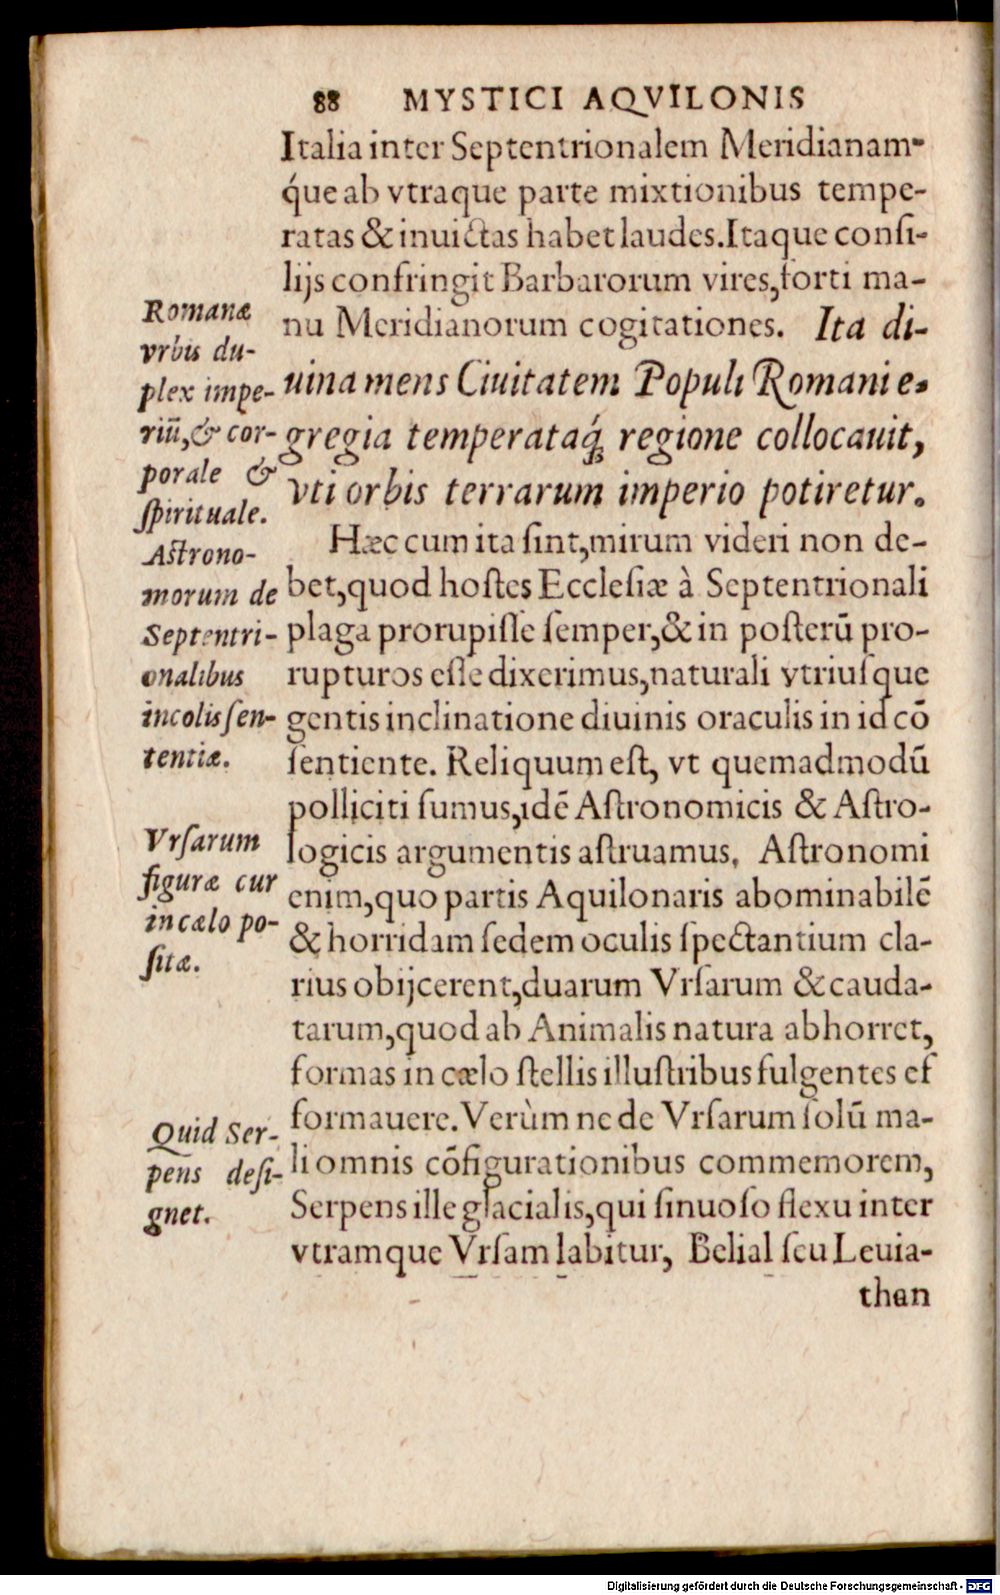 88 MYSTICI AQVILONIS
Italia inter Septentrionalem Meridianam-
q́ue ab vtraque parte mixtionibus tempe-
ratas & inuictas habet laudes. Itaque consi-
lijs confringit Barbarorum vires, forti ma-
nu Meridianorum cogitationes. Ita di-
uina mens Ciuitatem Populi Romani e-
gregia temperataq́; regione collocauit,
vti orbis terrarum imperio potiretur.
Hæc cum ita ſint, mirum videri non de-
bet, quod hoſtes Eccleſiæ à Septentrionali
plaga prorupiſſe ſemper, & in poſterū pro-
rupturos eſſe dixerimus, naturali vtriuſque
gentis inclinatione diuinis oraculis in id cō
ſentiente. Reliquum eſt, vt quemadmodū
polliciti ſumus, idē Aſtronomicis & Aſtro-
logicis argumentis aſtruamus. Aſtronomi
enim, quo partis Aquilonaris abominabilē
& horridam ſedem oculis ſpectantium cla-
rius obijcerent, duarum Vrſarum & cauda-
tarum, quod ab Animalis natura abhorret,
formas in cælo ſtellis illuſtribus fulgentes ef
formauere. Verùm ne de Vrſarum ſolū ma-
li omnis cōfigurationibus commemorem,
Serpens ille glacialis, qui ſinuoſo flexu inter
vtramque Vrſam labitur, Belial ſeu Leuia-
than
Romanæ
vrbis du-
plex impe-
riū, & cor-
porale &
ſpirituale.
Aſtrono-
morum de
Septentri-
onalibus
incolis ſen-
tentiæ.
Vrſarum
figuræ cur
in cælo po-
ſitæ.
Quid Ser-
pens deſi-
gnet.
Digitalisierung gefördert durch die Deutsche Forschungsgemeinschaft - DFG